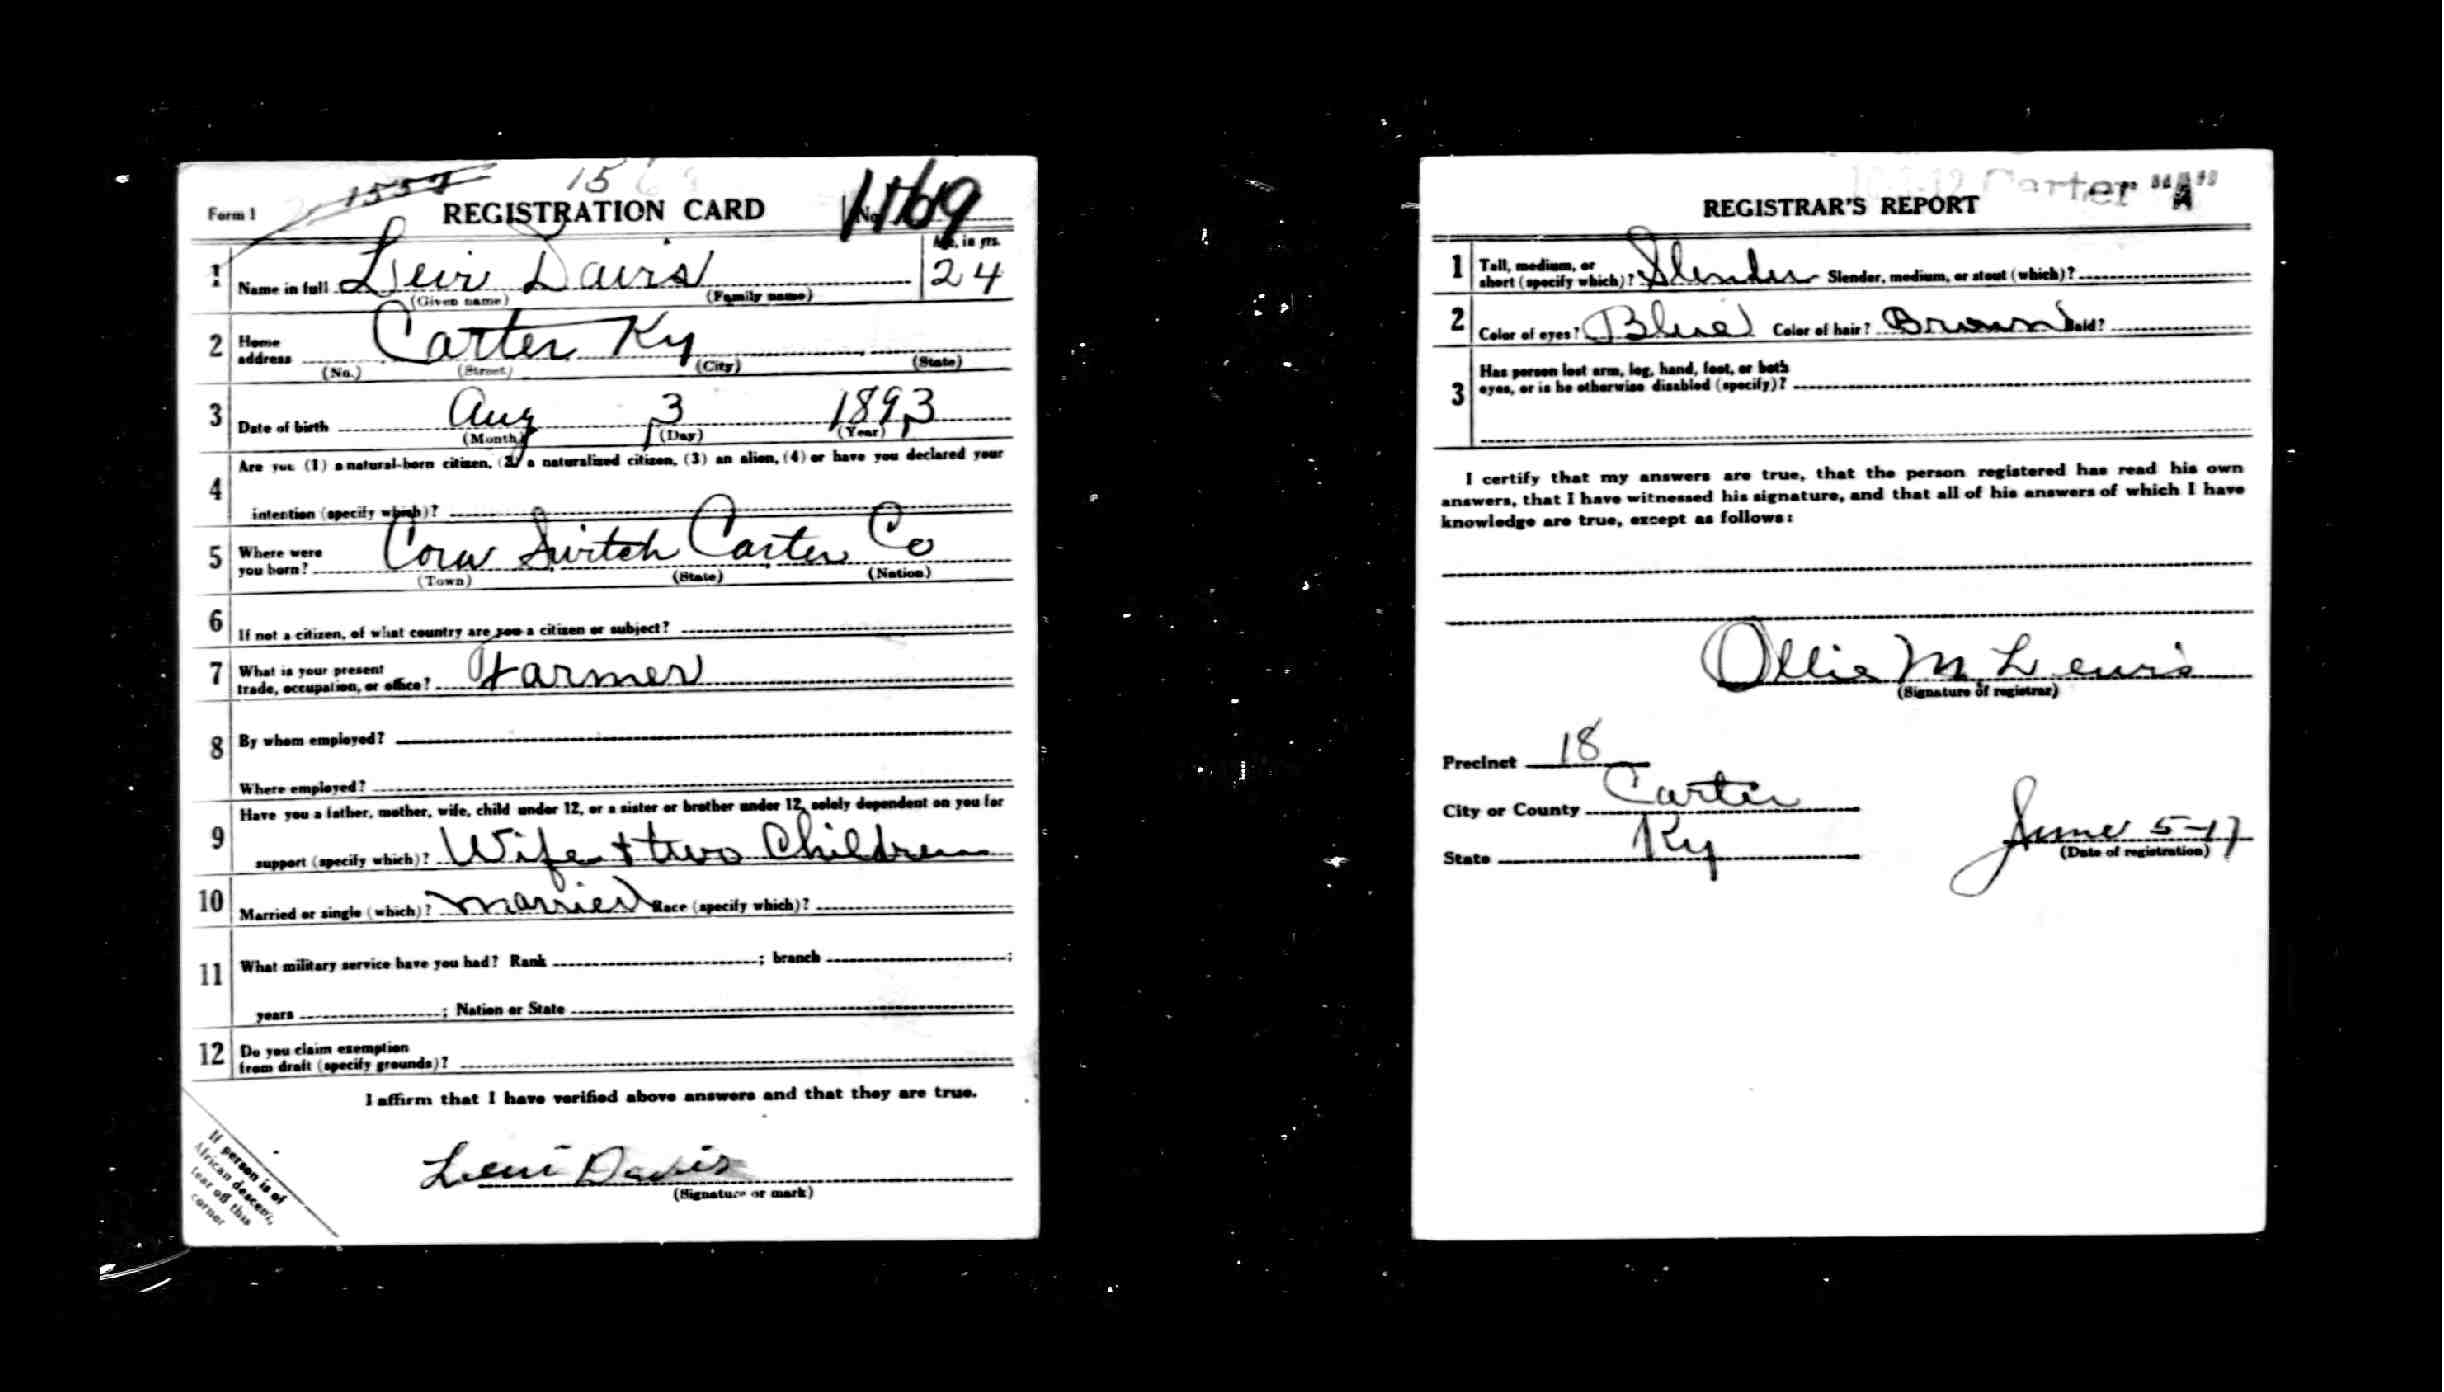 1557 15
Form 1 REGISTRATION CARD No. 1769
Age, in yrs.
1 Name in full Levi Davis 24
(Given name) (Family name)
2 Home address Carter Ky
(No.) (Street) (City) (State)
3 Date of birth Aug 3 1893
(Month) (Day) (Year)
4 Are you (1) a natural-born citizen, (2) a naturalized citizen, (3) an alien, (4) or have you declared your
intention (specify which)?
5 Where were you born? Cora Switch Carter Co
(Town) (State) (Nation)
6 If not a citizen, of what country are you a citizen or subject?
7 What is your present trade, occupation, or office? Farmer
8 By whom employed?
Where employed?
9 Have you a father, mother, wife, child under 12, or a sister or brother under 12, solely dependent on you for
support (specify which)? Wife + two Children
10 Married or single (which)? Married Race (specify which)?
11 What military service have you had? Rank ; branch ;
years ; Nation or State
12 Do you claim exemption
from draft (specify grounds)?
I affirm that I have verified above answers and that they are true.
Levi Davis
(Signature or mark)
If person is of
African descent,
tear off this
corner
Carter "A"
REGISTRAR'S REPORT
1 Tall, medium, or
short (specify which)? Slender Slender, medium, or stout (which)?
2 Color of eyes? Blue Color of hair? Brown Bald?
3 Has person lost arm, leg, hand, foot, or both
eyes, or is he otherwise disabled (specify)?
I certify that my answers are true, that the person registered has read his own
answers, that I have witnessed his signature, and that all of his answers of which I have
knowledge are true, except as follows:
Ollie M Lewis
(Signature of registrar)
Precinct 18
City or County Carter
State Ky
June 5-17
(Date of registration)